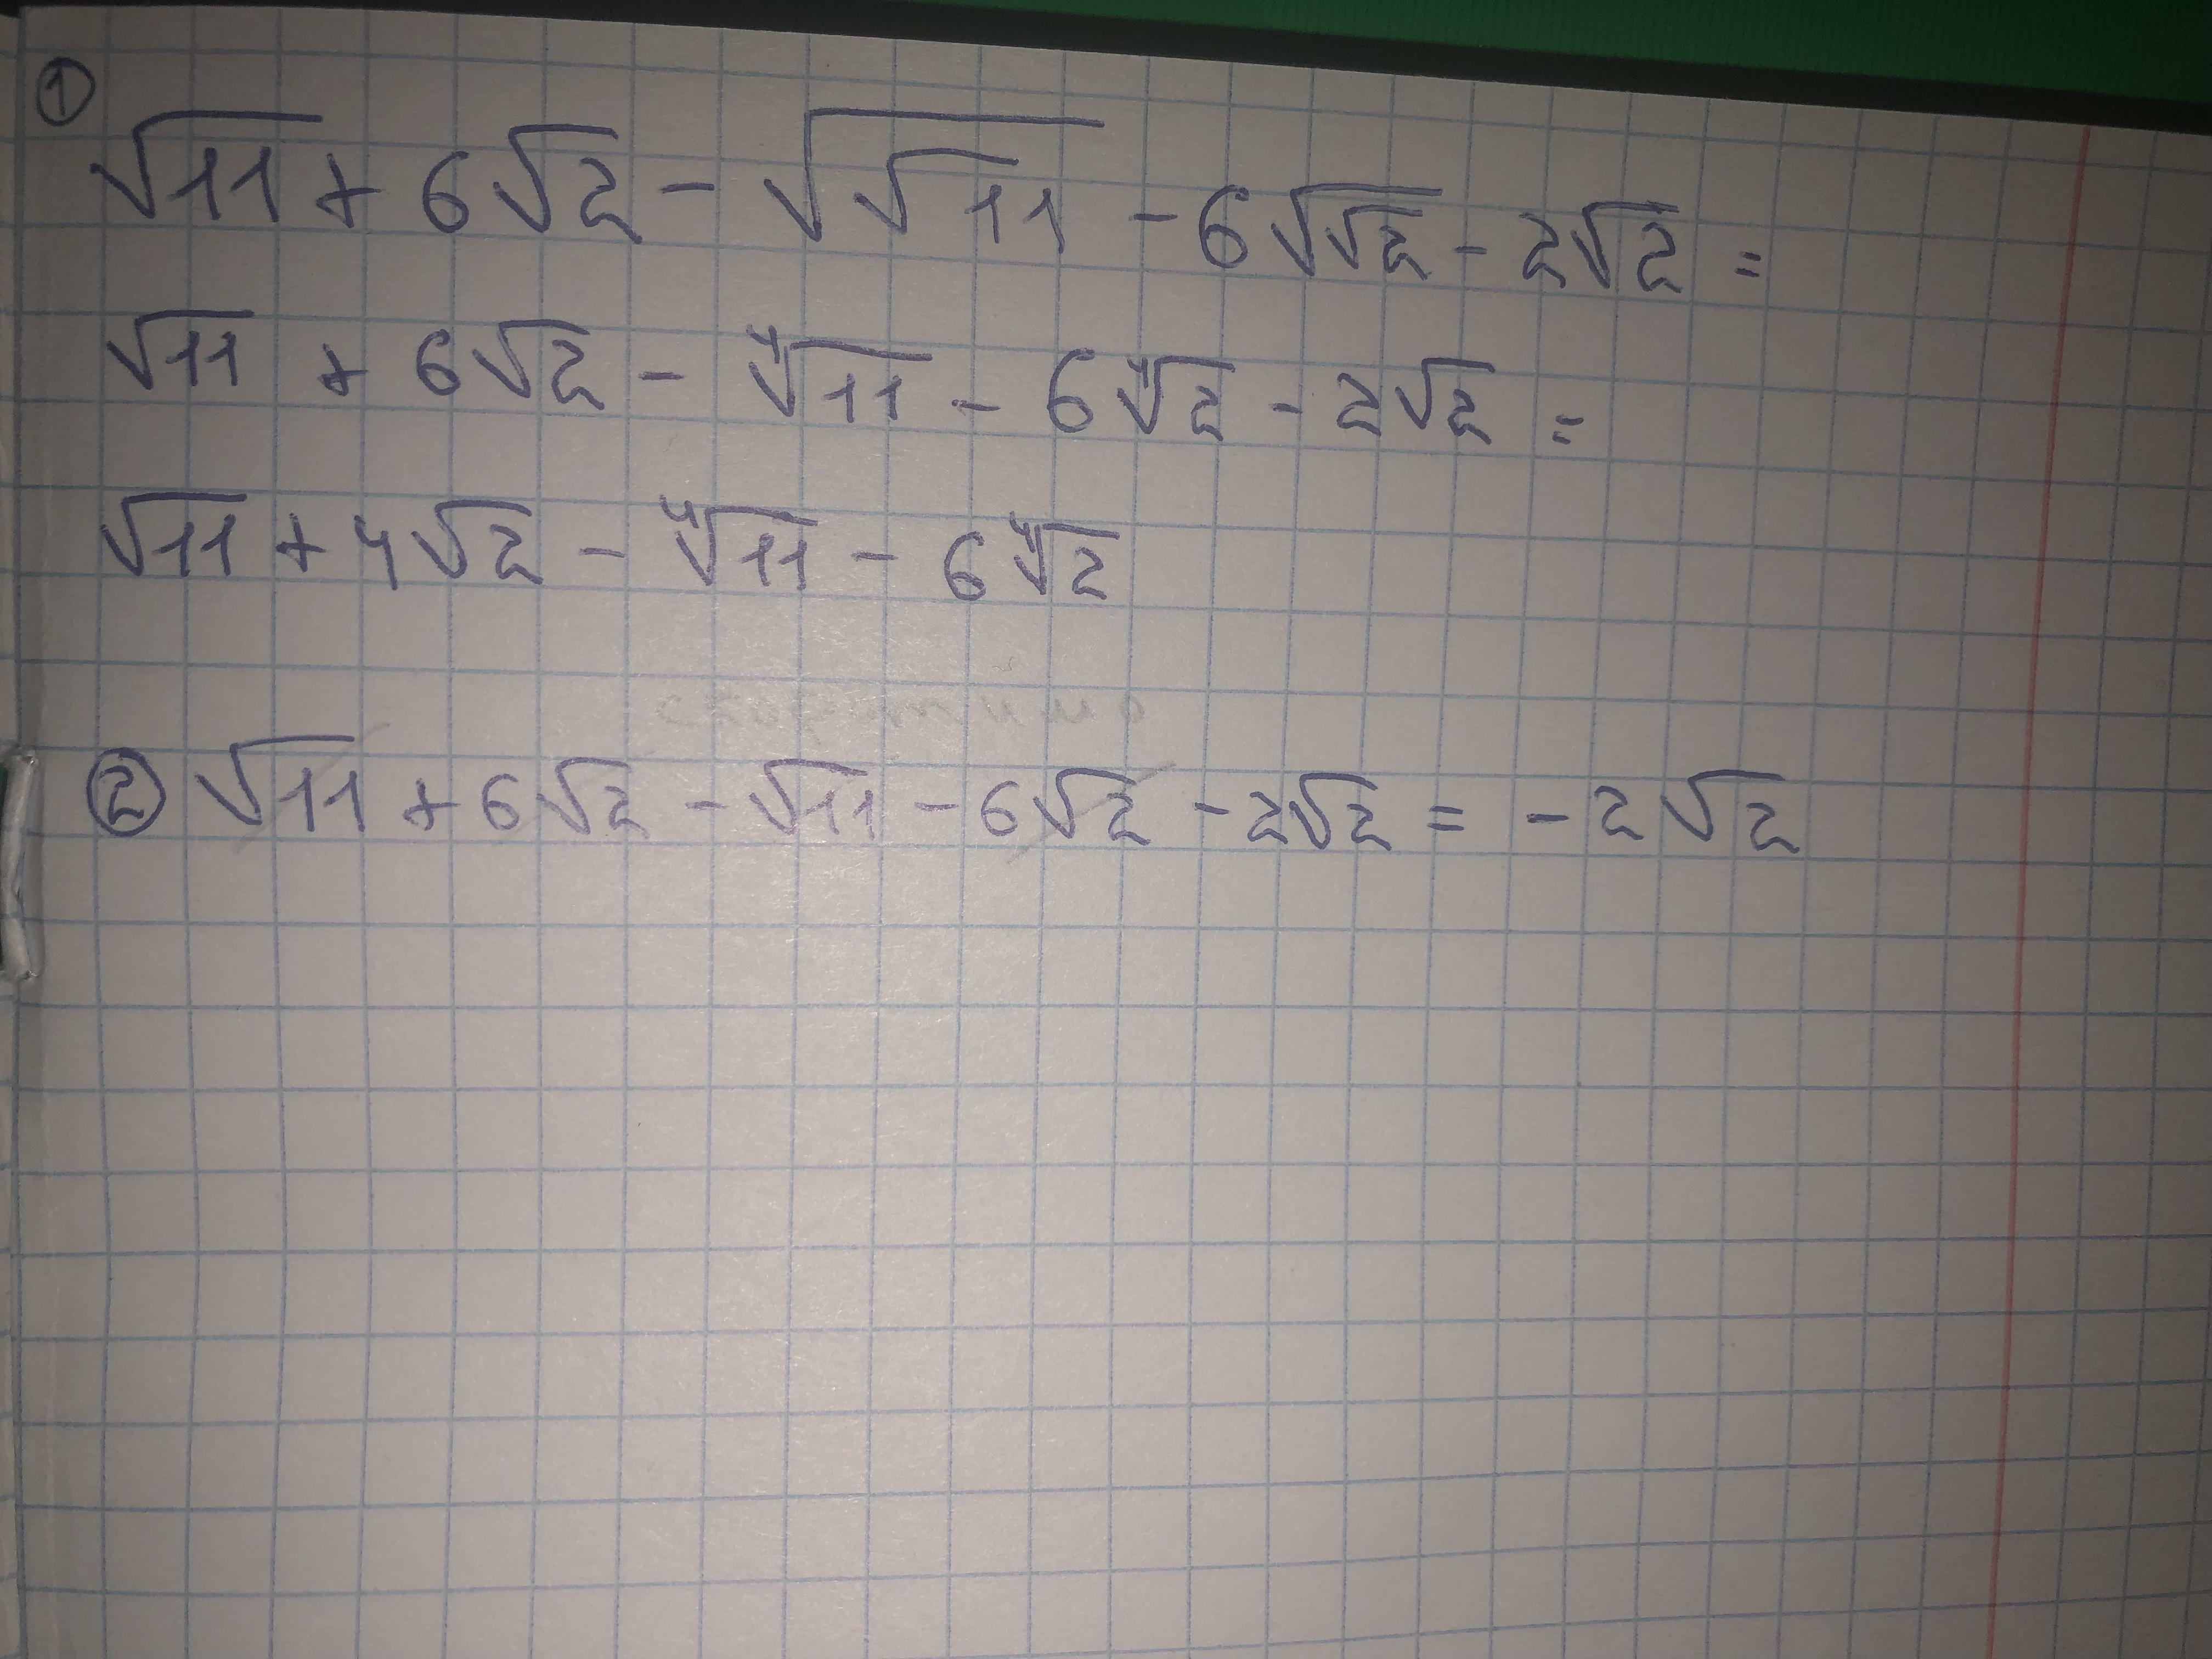 ① √11 + 6√2 - √√11 - 6√√2 - 2√2 =
√11 + 6√2 - ∜11 - 6∜2 - 2√2 =
√11 + 4√2 - ∜11 - 6∜2
② √11 + 6√2 - √11 - 6√2 - 2√2 = -2√2